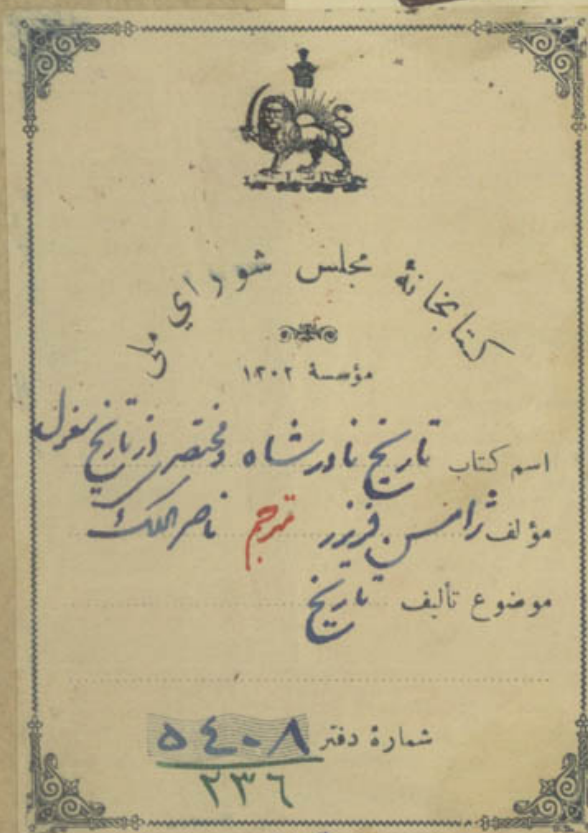 کتابخانهٔ مجلس شورای ملی
مؤسسهٔ ۱۳۰۲
اسم کتاب تاریخ نادرشاه و مختصری از تاریخ مغول
مؤلف ژامس فریزر مترجم ناصرالملک
موضوع تألیف تاریخ
شمارهٔ دفتر ۵۴۰۸
۲۳۶